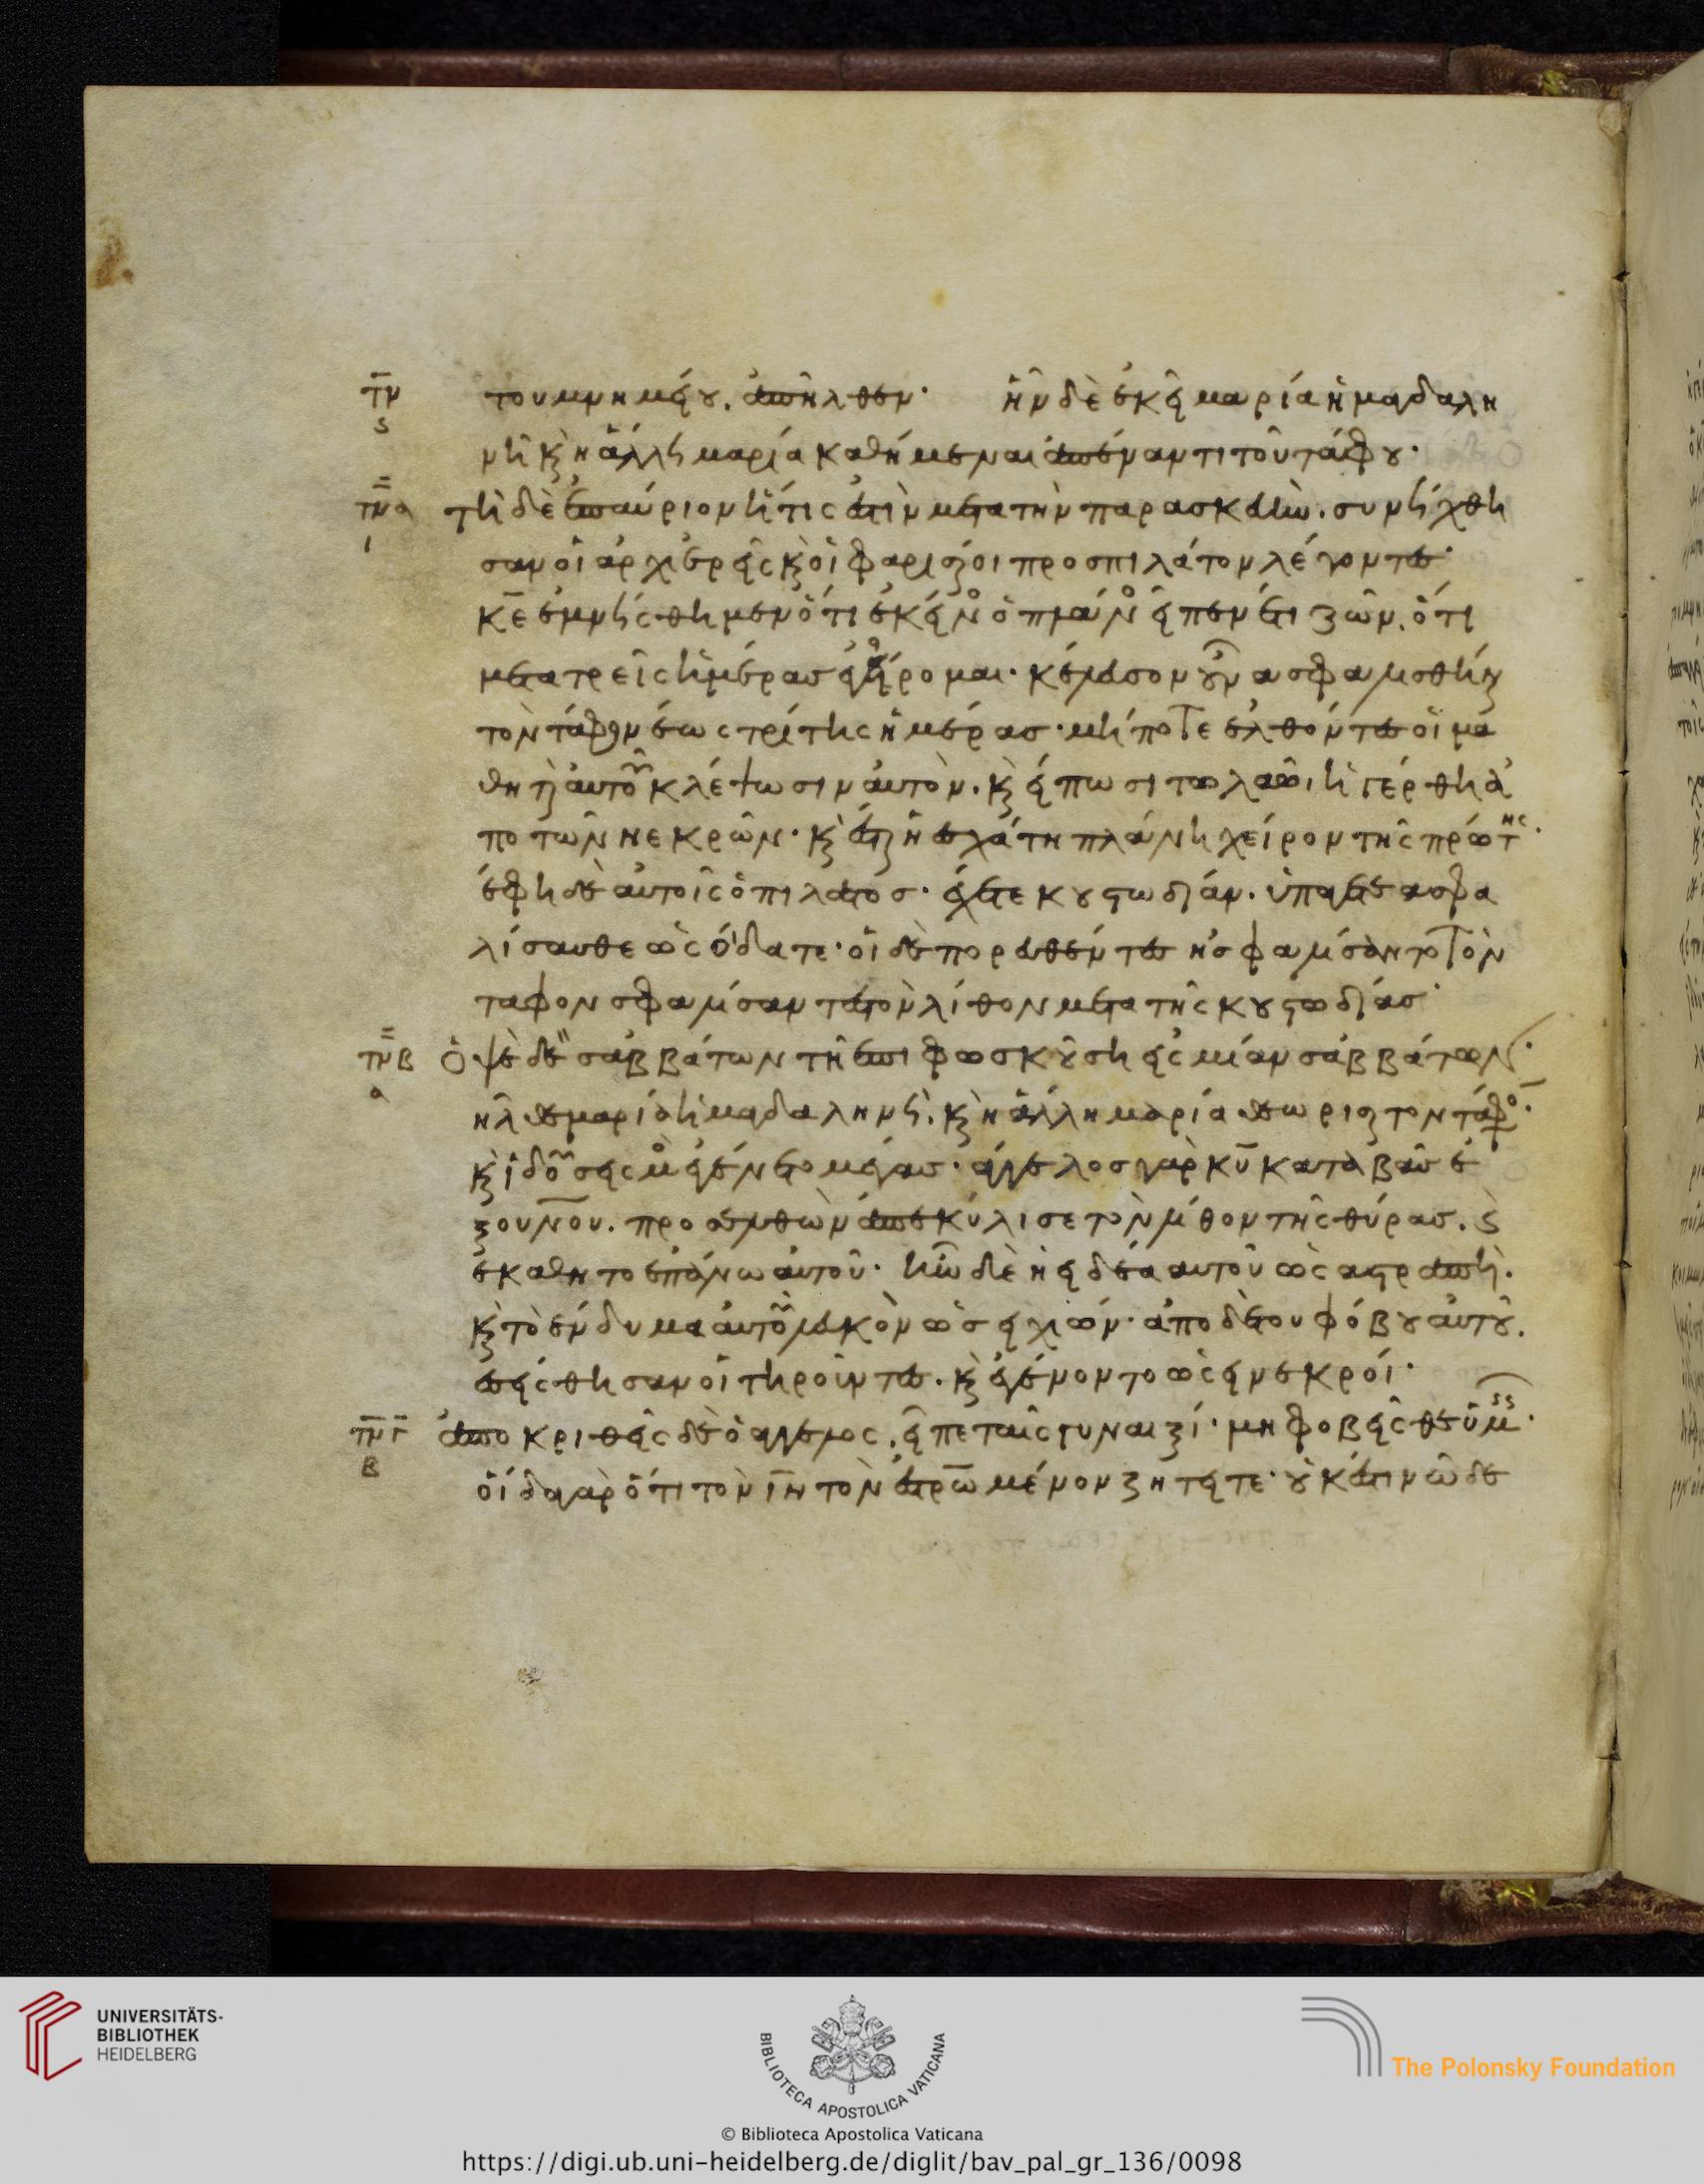 τν τουμνημείου. ἀπῆλθεν· ἦν δὲ ἐκεῖ μαρία ἡ μαγδαλη
ς
νὴ κ̀ ἡ ἄλλη μαρία καθήμεναι ἀπέναντι τοῦ τάφου·
τνα τῆ δὲ ἐπαύριον ἥτις ἐστὶν μετα τὴν παρασκευὴν. συνήχθη
ι
σαν οἱ ἀρχιερεῖς κ̀ οἱ φαρισαῖοι προσ πιλάτον λέγοντες·
κ̅ε ἐμνήσθημεν ὅτι ἐκεῖνος ὁ πλάνος εἶπεν ἔτι ζῶν. ὅτι
μετα τρεῖς ἡμέρας ἐγείρομαι· κέλευσον οὖν ασφαλισθῆναι
τὸν τάφον ἕως τρίτης ἡμέρας· μήποτε ἐλθόντες οἱ μα
θηταὶ αὐτοῦ κλέψωσιν αὐτὸν. κ̀ είπωσι τω λαῶ. ἠγέρθη ἀ
πο τῶν νεκρῶν· κ̀ έσται ἡ εσχάτη πλάνη χείρον τῆς πρώτης.
ἔφη δὲ αὐτοῖς ὁ πιλάτος· έχετε κουστωδίαν. ὑπάγετε ασφα
λίσασθε ὡς οἴδατε· οἱ δὲ πορευθέντες ησφαλίσαντο τὸν
ταφον σφραγίσαντες τὸν λίθον μετα τῆς κουστωδίας·
τνβ Ὀψὲ δὲ σαββάτων τῆ επιφωσκούση εἰς μίαν σαββάτων·
α
ηλθε μαρία ἡ μαγδαληνὴ. κ̀ ἡ ἄλλη μαρία θεωρῆσαι τον τάφον.
κ̀ ἰδοῦ σεισμὸς ἐγένετο μέγας· άγγελος γαρ κ̅υ καταβὰς ἐ
ξ ου̅νου. προσελθὼν ἀπεκύλισε τὸν λίθον τῆς θύρας. κ̀
ἐκάθητο επάνω αὐτοῦ· ἦν δὲ ἡ ειδέα αυτοῦ ὡς αστραπὴ.
κ̀ τὸ ἔνδυμα αὐτοῦ λευκὸν ὡσεὶ χιών· ἀπο δὲ του φόβου αὐτοῦ.
ἐσείσθησαν οἱ τηροῦντες. κ̀ ἐγένοντο ὡσεὶ νεκροί·
τνγ ἀποκριθεὶς δὲ ὁ άγγελος. εἶπε ταῖς γυναιξί· μη φοβεῖσθε ὑμεῖς·
β
οἶδα γαρ ὅτι τὸν ι̅ν τὸν ἐστρω̅μένον ζητεῖτε· οὐκ έστιν ὧδε
UNIVERSITÄTS-
BIBLIOTHEK
HEIDELBERG
BIBLIOTECA APOSTOLICA VATICANA
The Polonsky Foundation
© Biblioteca Apostolica Vaticana
https://digi.ub.uni-heidelberg.de/diglit/bav_pal_gr_136/0098